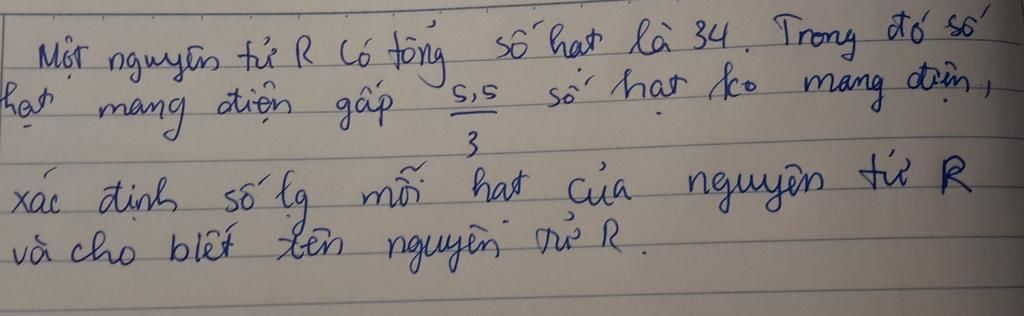 Một nguyên tử R có tổng số hạt là 34. Trong đó số
hạt mang điện gấp 5,5/3 số hạt ko mang điện,
xác định số lg mỗi hạt của nguyên tử R
và cho biết tên nguyên tử R.